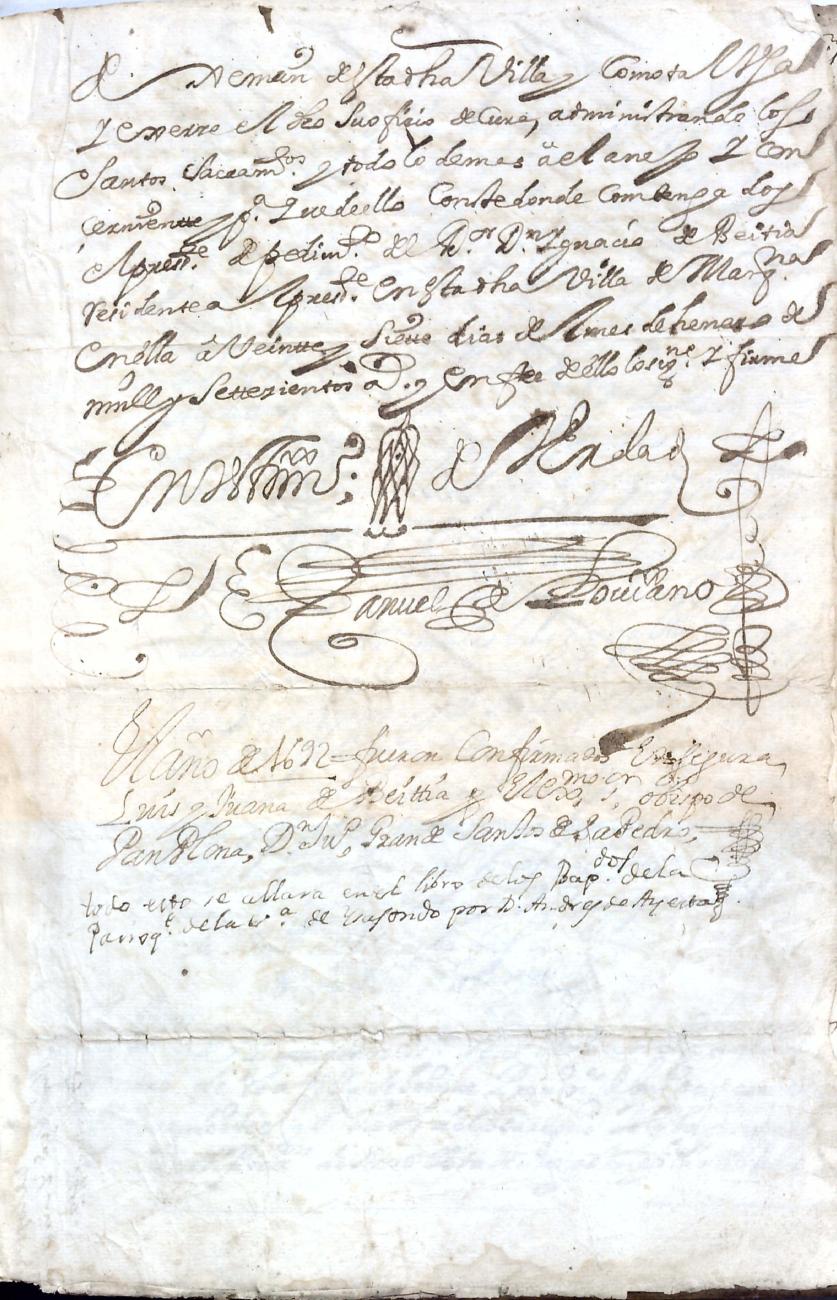 de Xemein de esta dha Villa, y Como tal Usa
Y exerze el dho Su oficio de Cura, administrando los
Santos Sacram.tos y todo lo demas a el anejo Y con
cerniente y p.a Que dello Conste donde Combenga doy
el pres.te de pedim.to del S.or D.n Ygnacio de Beitia
residente al pres.te en esta dha Villa de Marq.na
en ella â Veintte y Siette dias del mes de henero de
mill y Settezientos a.s y en fee dello lo sig.ne Y firme
En testim.o de Verdad
Manuel de
El año de 1692 fueron Confirmados En Segura,
Luis y Juana de Beittia y Ill.mo S.r obispo de
Pamplona, D.n Ju.o Grande Santos de S.n Pedro,
todo esto se allara en el libro de los Bap.dos de la
Parroq.l de la v.a de Ydiasondo por D. Andres de Ayesta